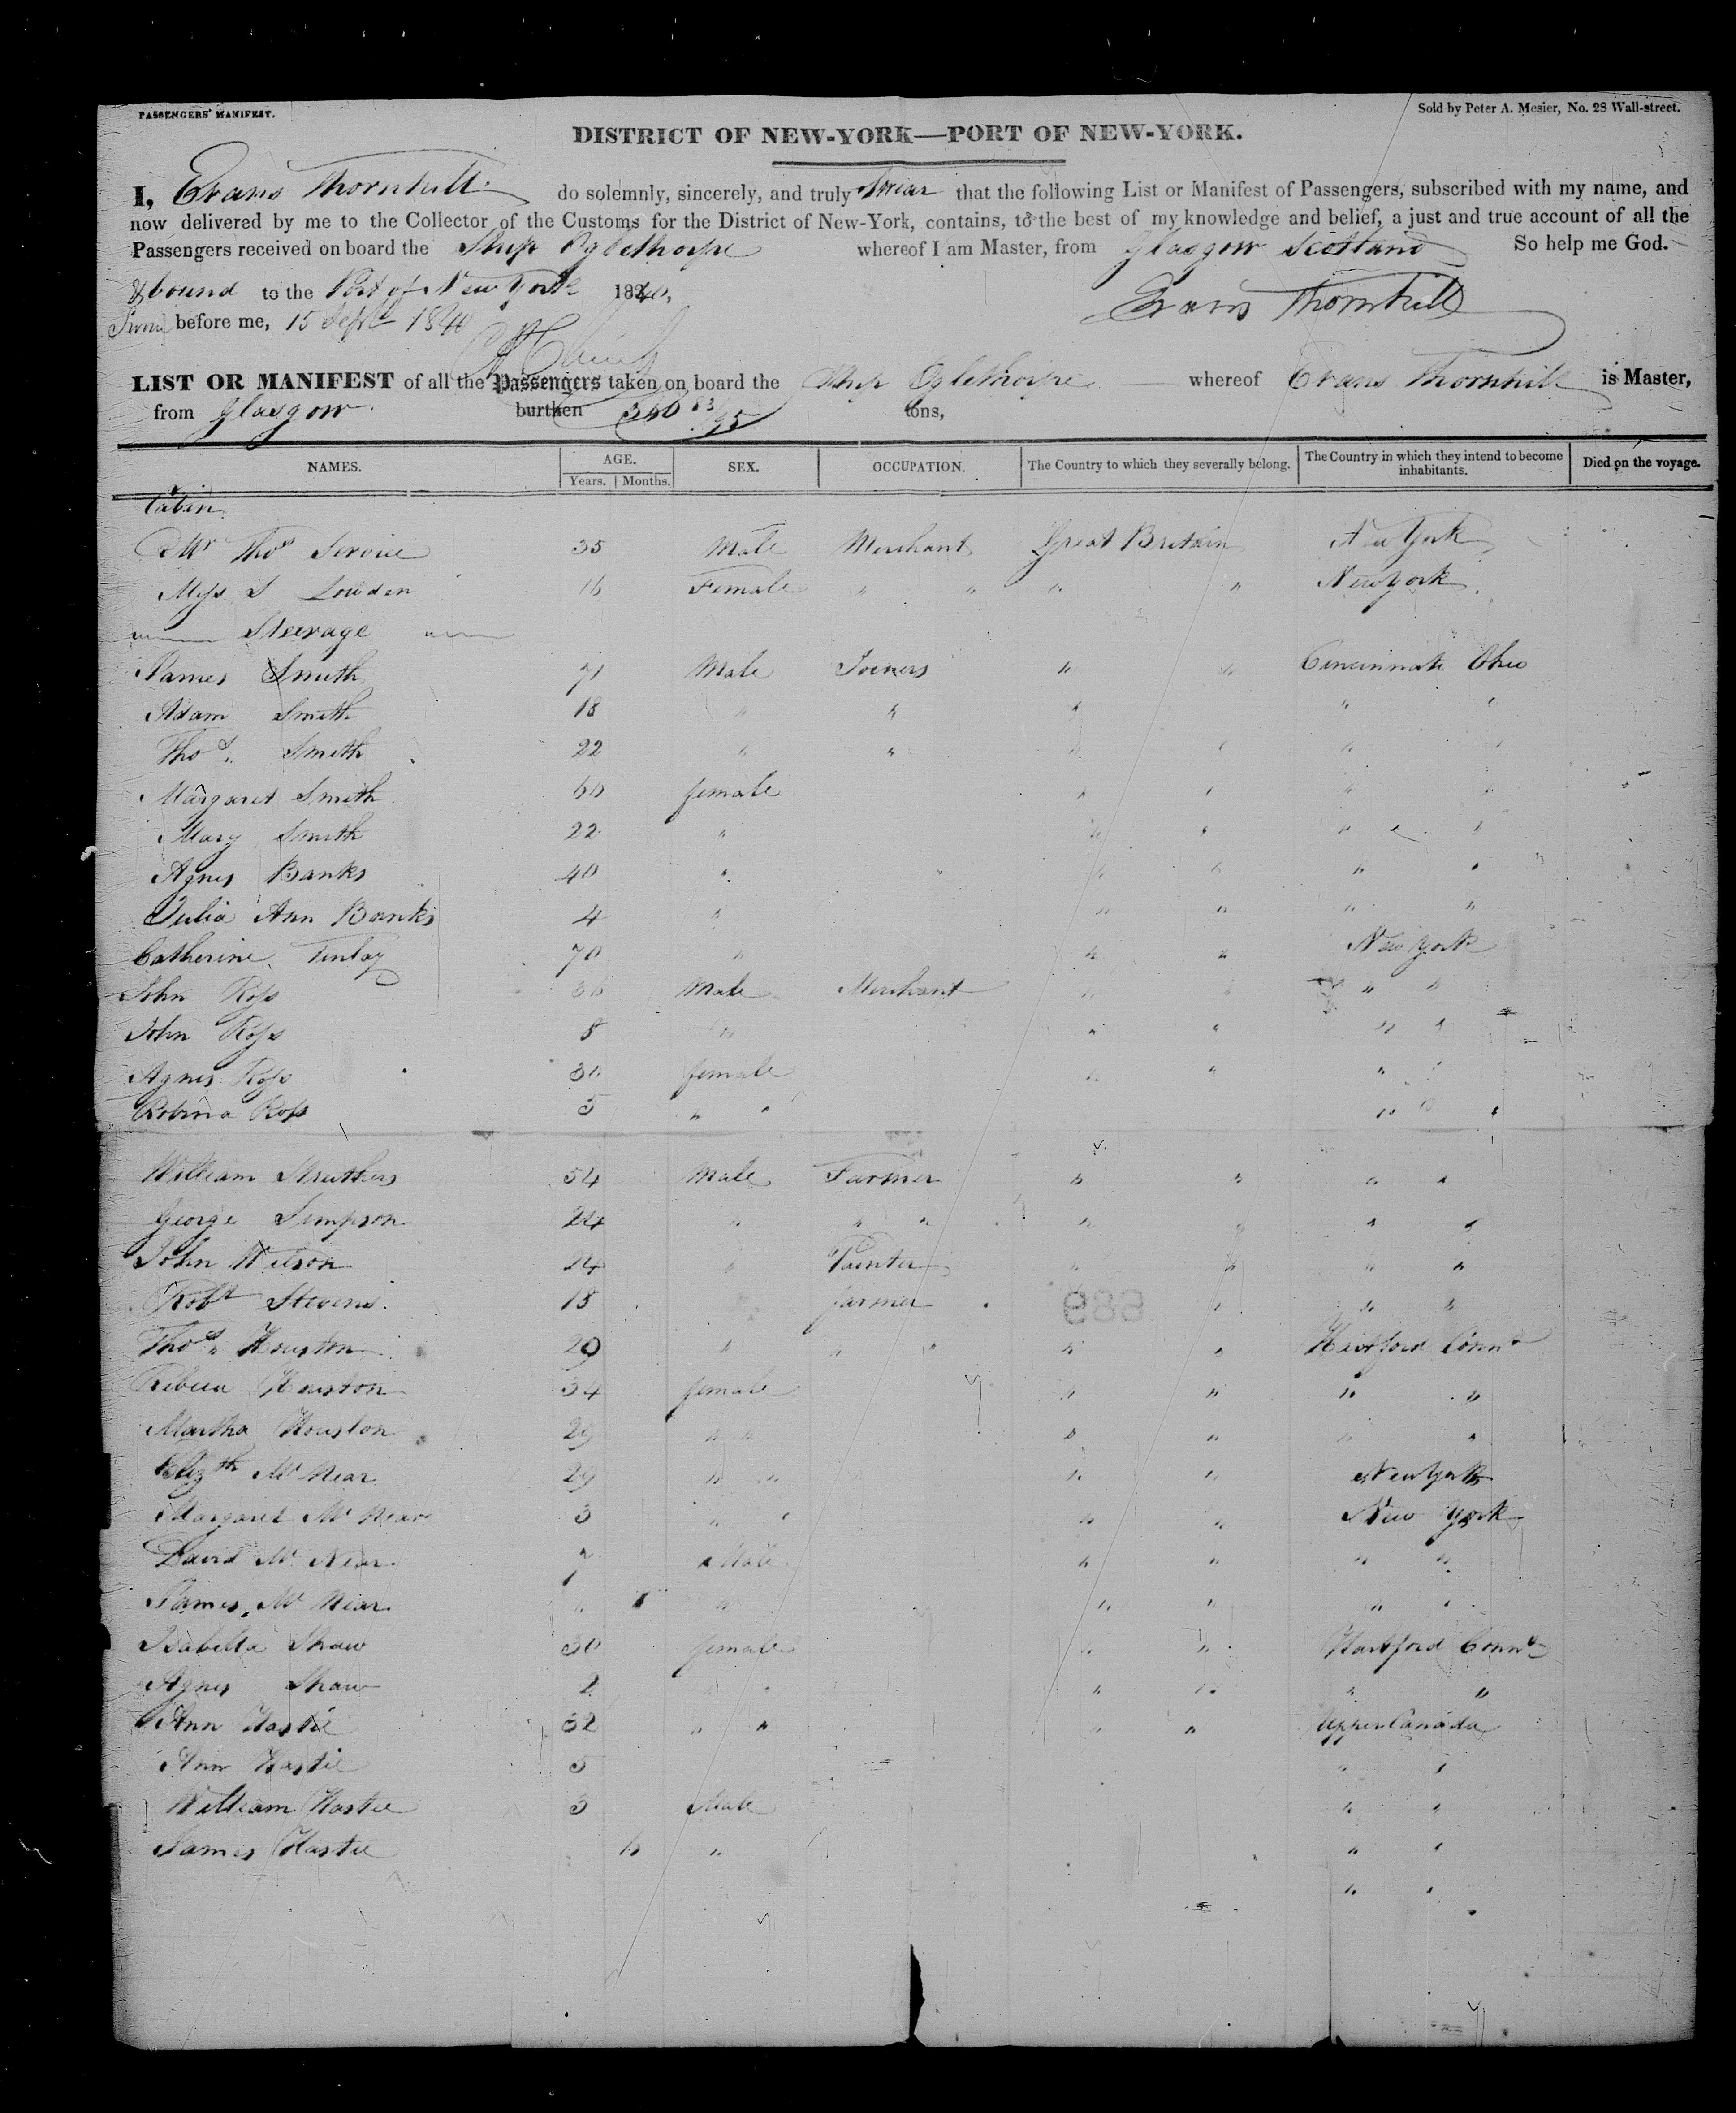 PASSENGERS' MANIFEST. Sold by Peter A. Mesier, No. 28 Wall-street.
DISTRICT OF NEW-YORK—PORT OF NEW-YORK.
I, Evans Thornhill do solemnly, sincerely, and truly Swear that the following List or Manifest of Passengers, subscribed with my name, and
now delivered by me to the Collector of the Customs for the District of New-York, contains, to the best of my knowledge and belief, a just and true account of all the
Passengers received on board the Ship Oglethorpe whereof I am Master, from Glasgow Scotland So help me God.
& bound to the Port of New York 1840,
Sworn before me, 15 Sept 1840 Evans Thornhill
LIST OR MANIFEST of all the Passengers taken on board the Ship Oglethorpe whereof Evans Thornhill is Master,
from Glasgow burthen 360 83/95 tons,
NAMES. AGE. SEX. OCCUPATION. The Country to which they severally belong. The Country in which they intend to become inhabitants. Died on the voyage.
Years. Months.
Cabin
Mr Thos Service 35 Male Merchant Great Britain New York
Miss S Lowden 16 Female " " " " New York
Steerage
James Smith 71 Male Joiners " " Cincinnati Ohio
Adam Smith 18 " " " " "
Thos. Smith 22 " " " " " "
Margaret Smith 60 female " " " "
Mary Smith 22 " " " " "
Agnes Banks 40 " " " " "
Julia Ann Banks 4 " " " " "
Catherine Finlay 70 " " " New York
John Ross Male Merchant " " " "
John Ross 8 " " " " "
Agnes Ross 30 female " " " "
Robina Ross 5 " " " " "
William Struthers 54 Male Farmer " " " "
George Simpson 24 " " " " " " "
John Wilson 24 " Painter " " " "
Robt Stevens 18 farmer " " "
Thos. Houston 29 " " " " " Hartford Connt
Rebecca Houston 34 female " " " "
Martha Houston 29 " " " " " "
Elizth Mc Near 29 " " " " New York
Margaret Mc Near 3 " " " " New York
David Mc Near 7 Male " " " "
James Mc Near " 1 " " " " "
Isabella Shaw 30 female " " Hartford Connt
Agnes Shaw 2 " " " " "
Ann Hastie 32 " " " " Upper Canada
Ann Hastie 5 " "
William Hastie 3 Male " "
James Hastie 6 " " "
" "